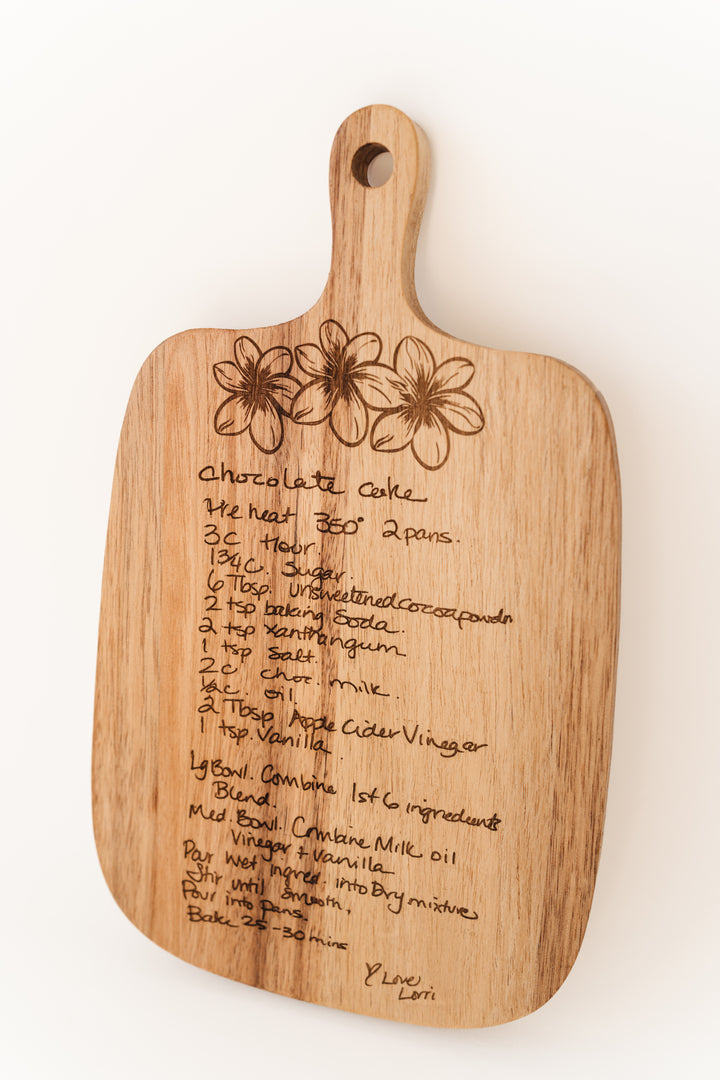 Chocolate Cake
Pre heat 350° 2 pans.
3 C flour.
1 3/4 C. Sugar.
6 Tbsp. unsweetened cocoa powdr
2 tsp baking Soda.
2 tsp xanthangum
1 tsp Salt.
2 C choc. milk.
1/2 c. oil.
2 Tbsp Apple Cider Vinegar
1 tsp. Vanilla.
Lg Bowl. Combine 1st 6 ingredients
Blend.
Med. Bowl. Combine Milk oil
Vinegar + Vanilla
Pour wet Ingred. into Dry mixture
Stir until Smooth.
Pour into pans.
Bake 25-30 mins
♡ Love
Lorri